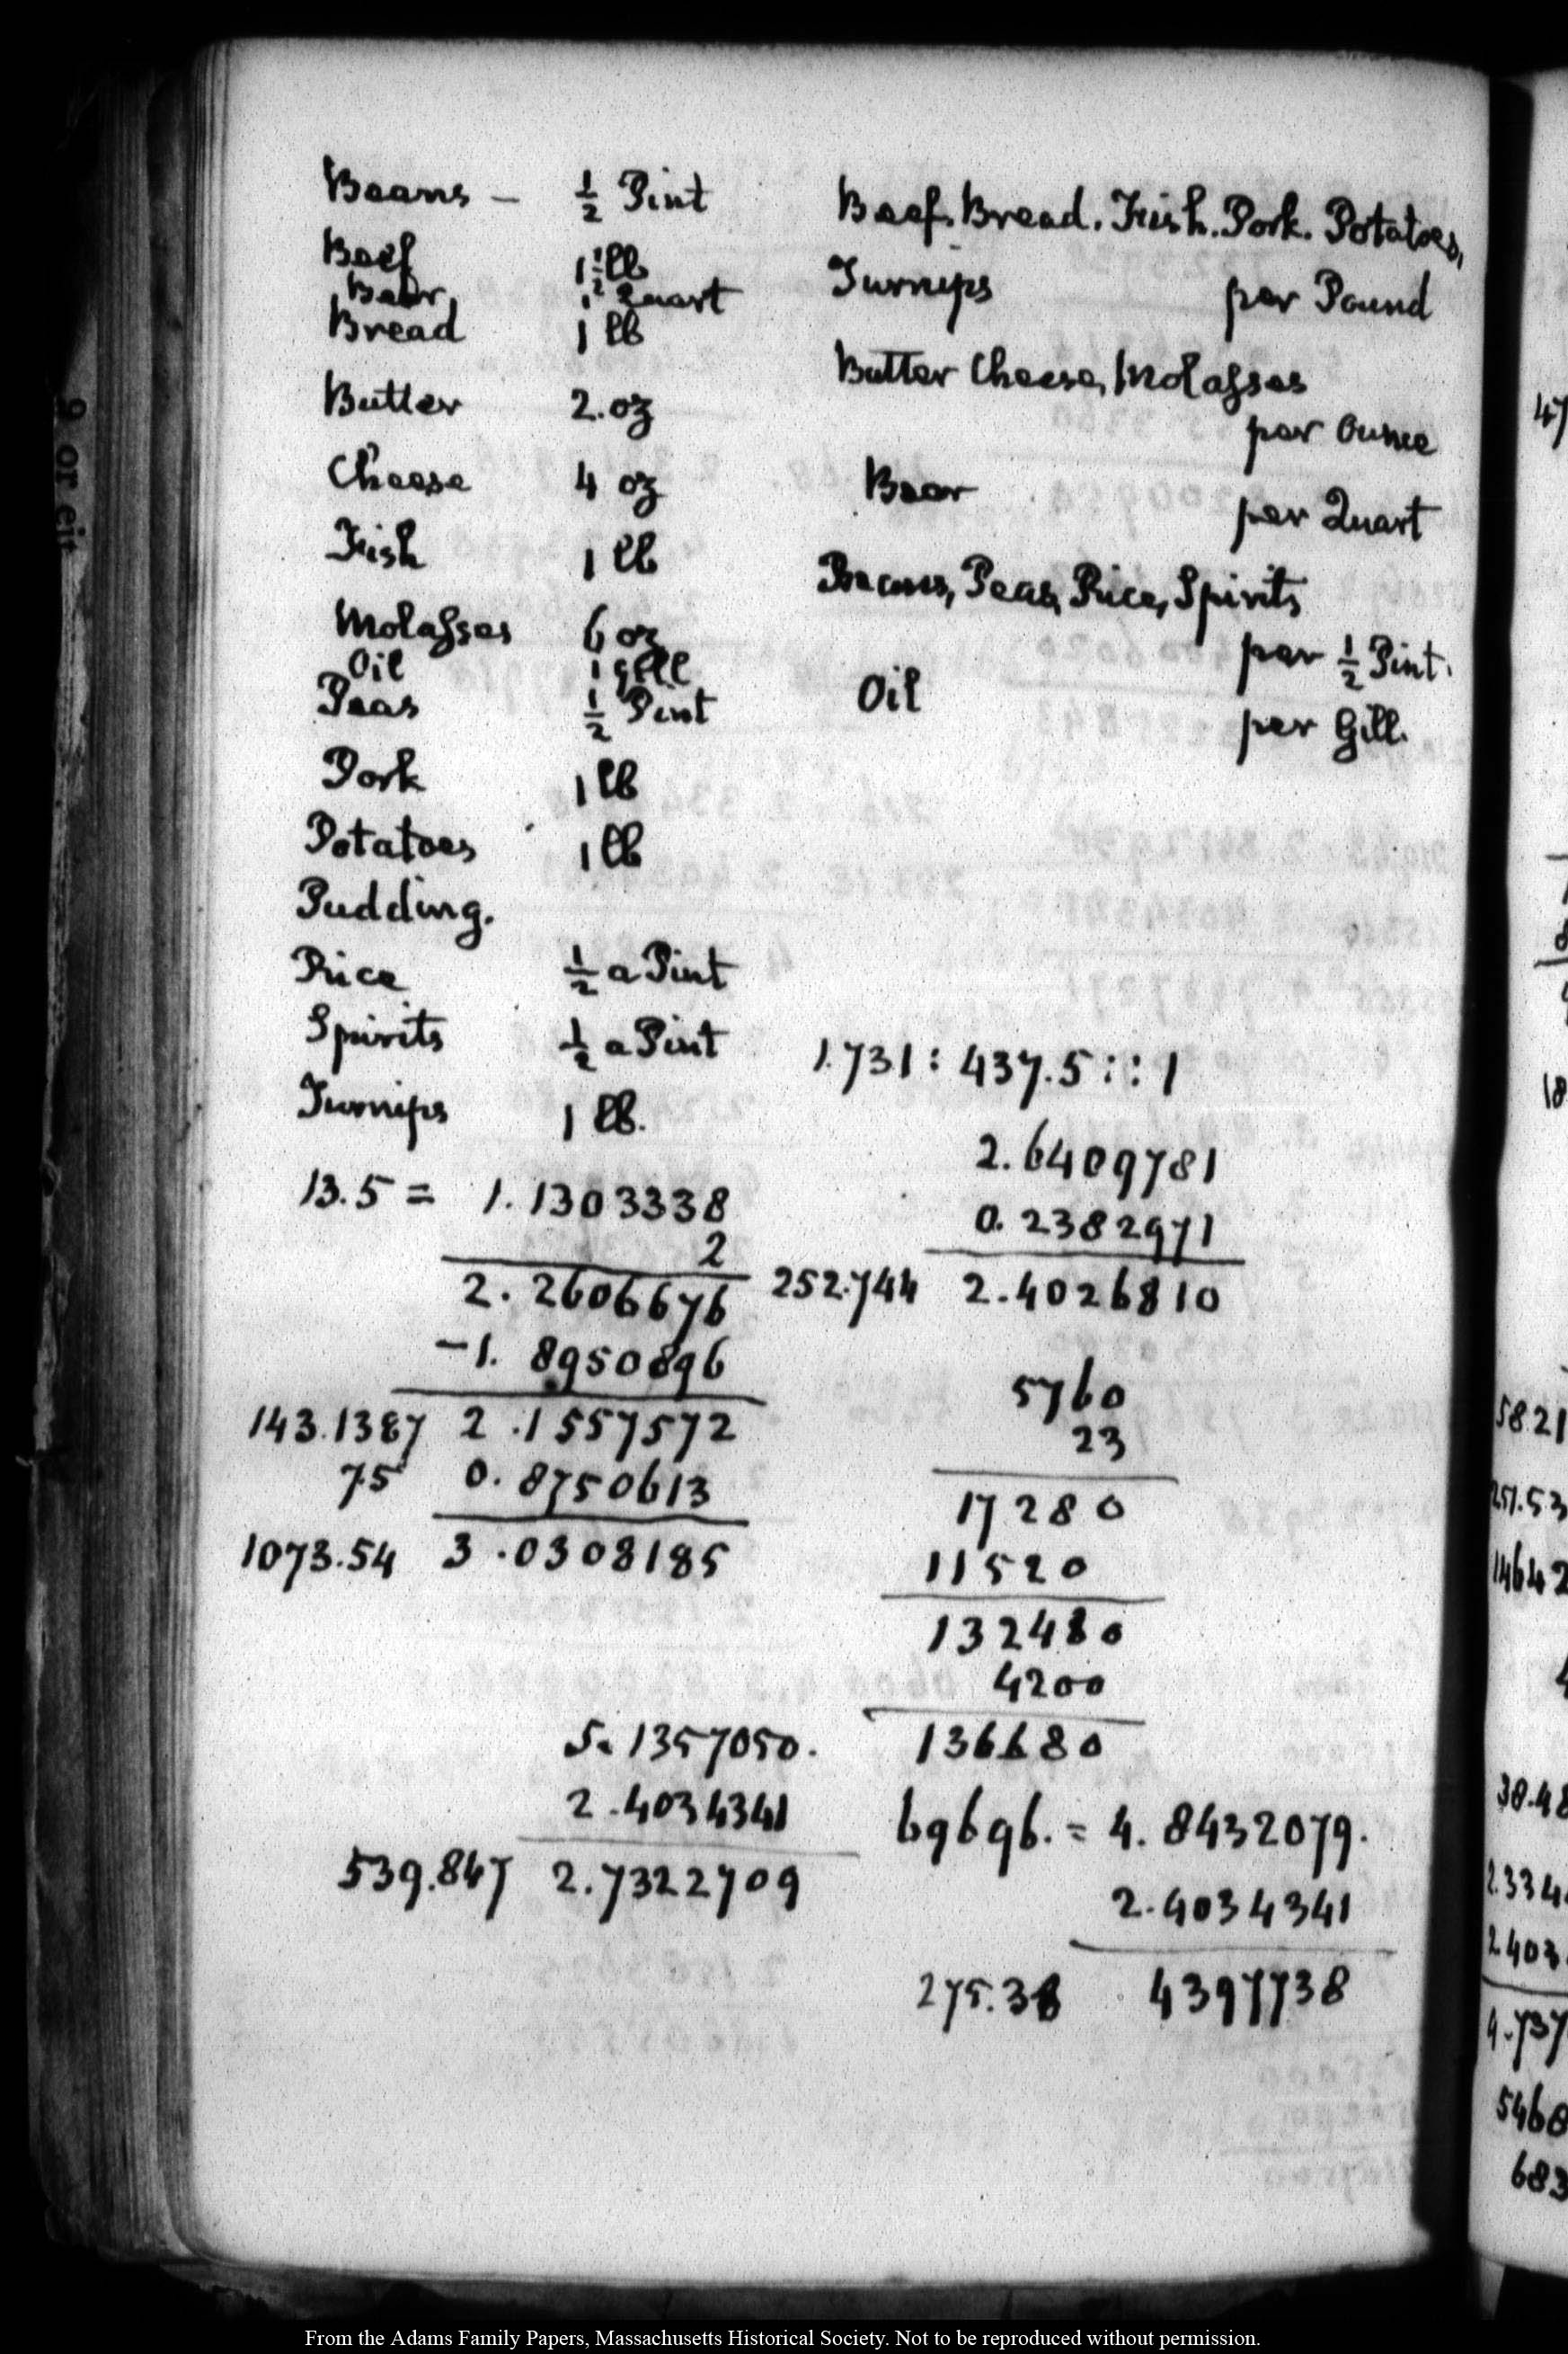 Beans – ½ Pint
Beef 1½ lb
Beer, 1 Quart
Bread 1 lb
Butter 2. oz
Cheese 4 oz
Fish 1 lb
Molasses 6 oz
Oil 1 gill
Peas ½ Pint
Pork 1 lb
Potatoes 1 lb
Pudding.
Rice ½ a Pint
Spirits ½ a Pint
Turnips 1 lb.
13.5 = 1.1303338
2
2.2606676
–1.8950896
143.1387 2.1557572
7.5 0.8750613
1073.54 3.0308185
5.1357050.
2.4034341
539.847 2.7322709
Beef. Bread. Fish. Pork. Potatoes,
Turnips per Pound
Butter Cheese, Molasses
per Ounce
Beer per Quart
Beans, Peas, Rice, Spirits
per ½ Pint.
Oil per Gill.
1.731 : 437.5 :: 1
2.6409781
0.2382971
252.744 2.4026810
5760
23
17280
11520
132480
4200
136680
69696. = 4.8432079.
2.4034341
275.38 4397738
47
18
58.21
251.53
14642
38.48
2.334
2.403
4.737
5468
683
9 or eit
From the Adams Family Papers, Massachusetts Historical Society. Not to be reproduced without permission.